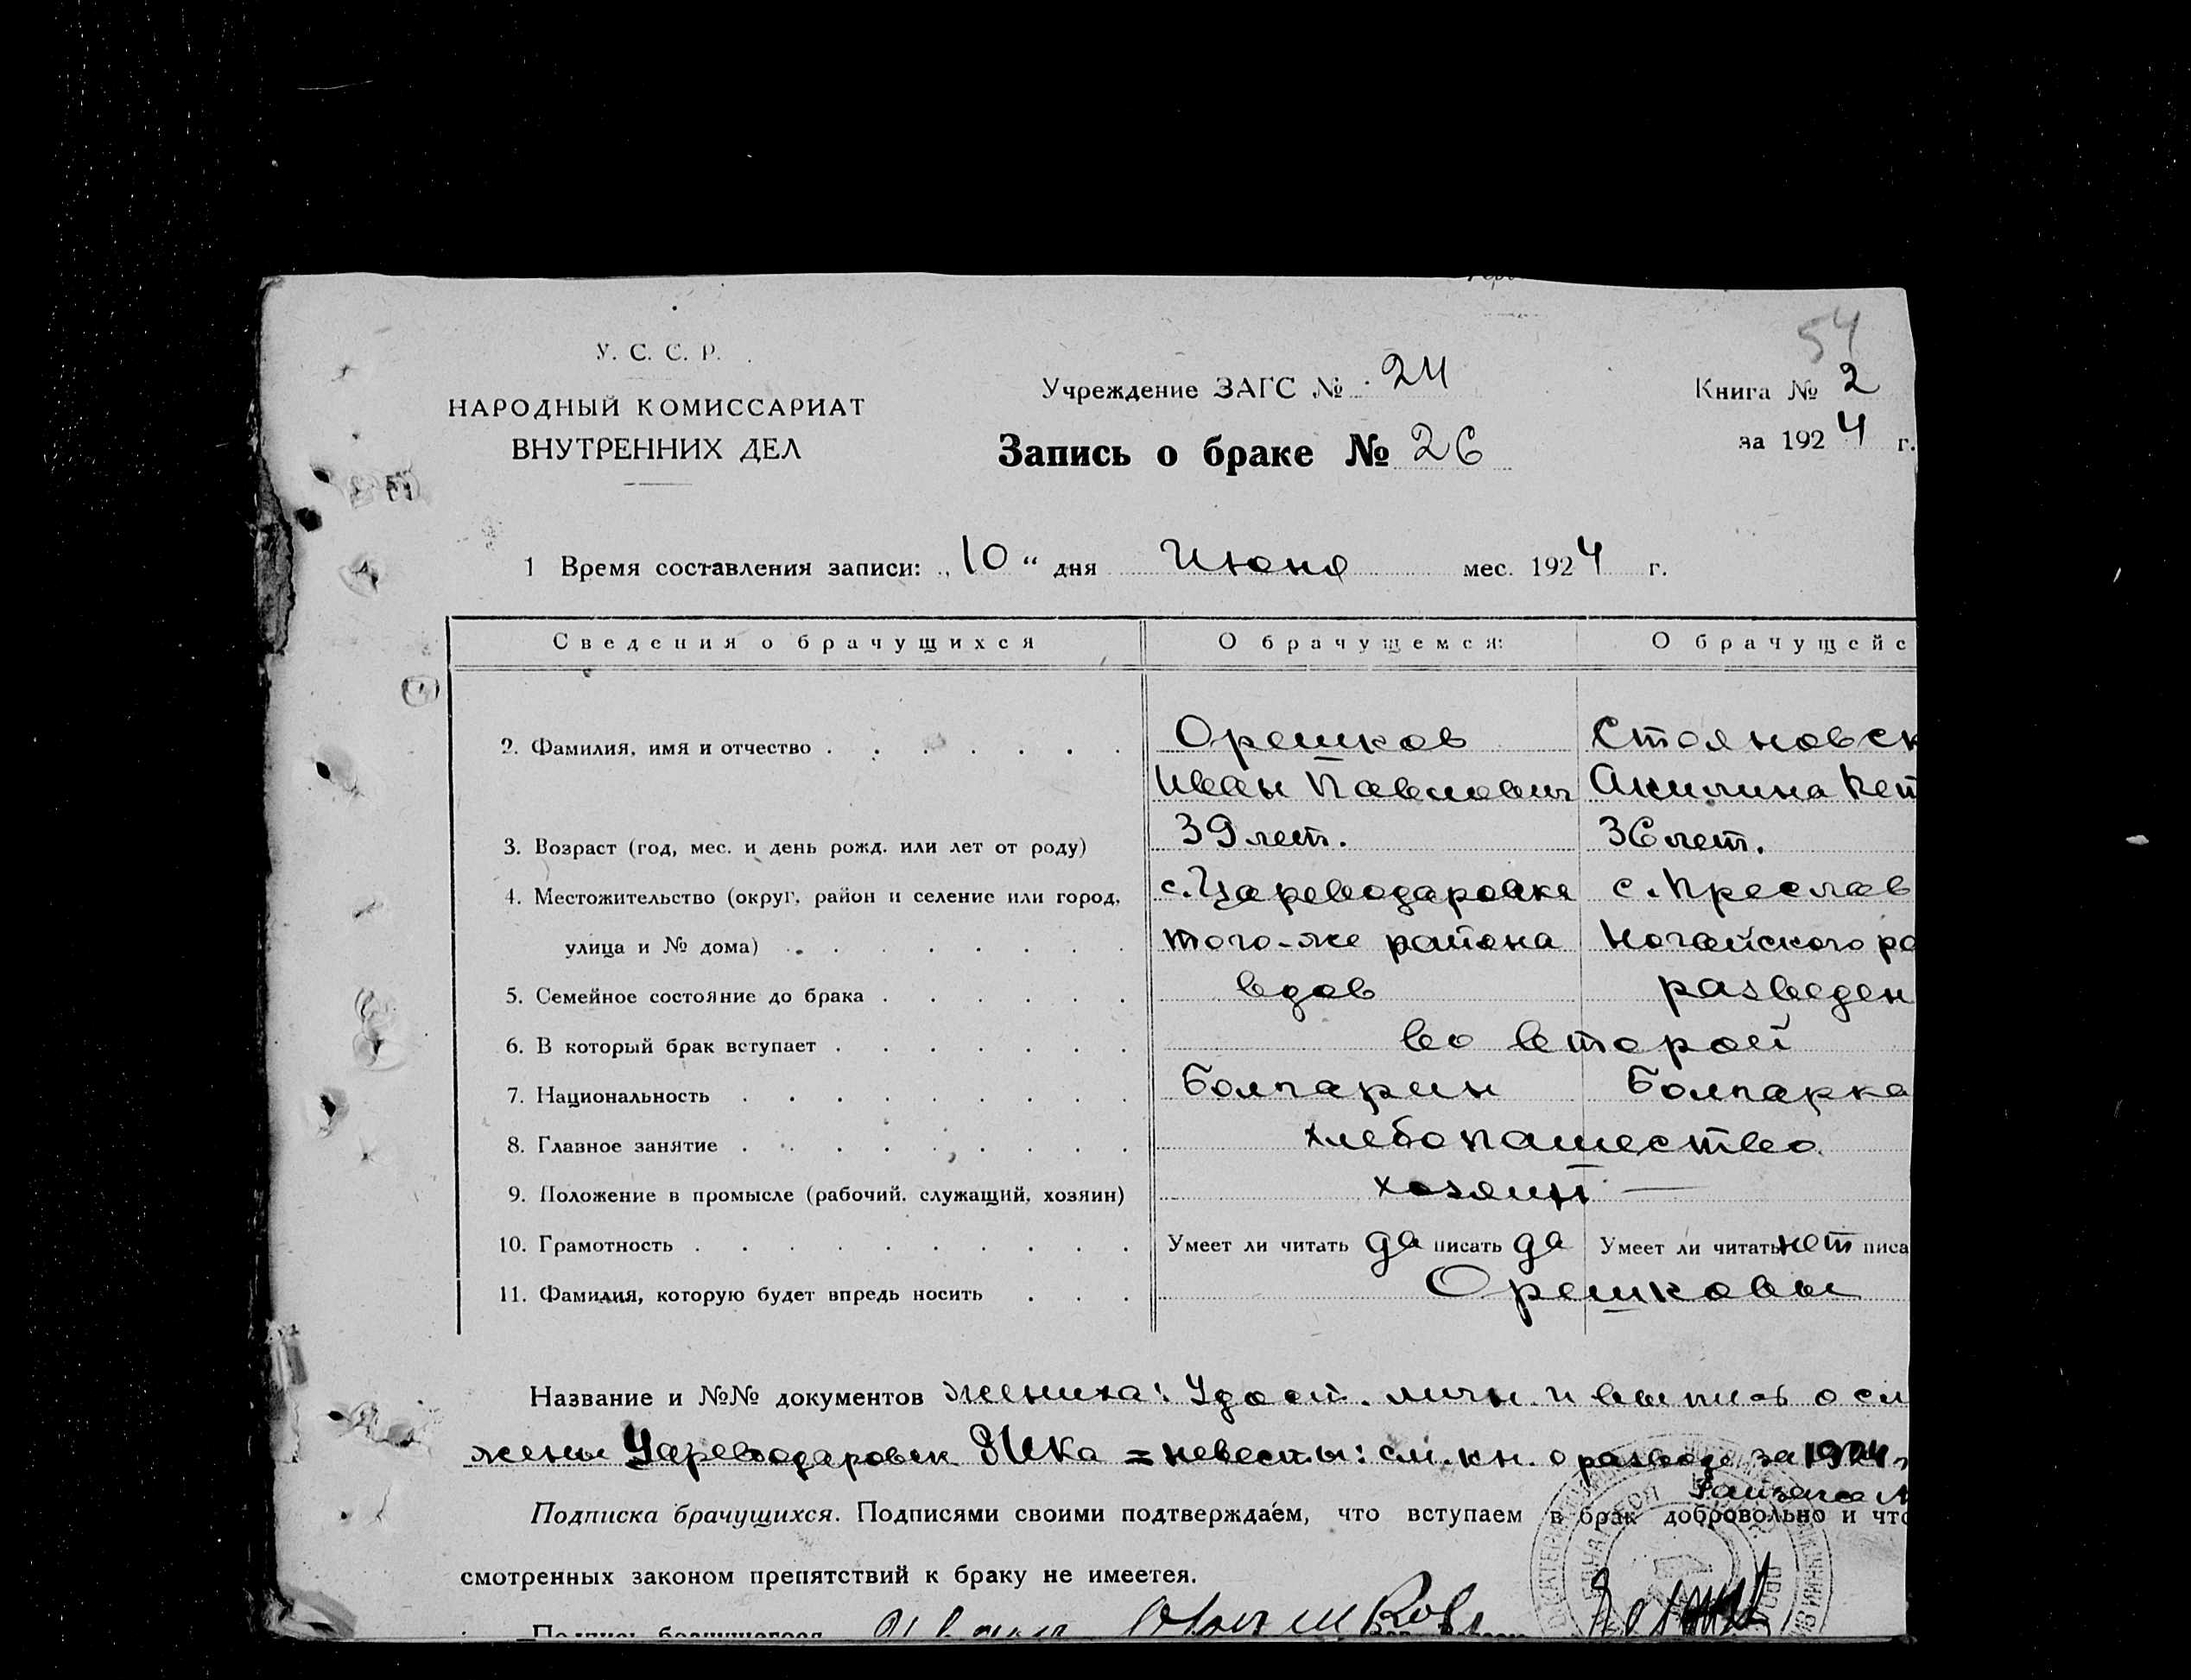 54
У. С. С. Р.
НАРОДНЫЙ КОМИССАРИАТ
ВНУТРЕННИХ ДЕЛ
Учреждение ЗАГС № 24
Запись о браке № 26
Книга № 2
за 1924 г.
1 Время составления записи: „10“ дня Июня мес. 1924 г.
Сведения о брачущихся О брачущемся: О брачущейс
2. Фамилия, имя и отчество Орешков Стояновск
Иван Павлович Акилина Пет
3. Возраст (год, мес. и день рожд. или лет от роду) 39 лет. 36 лет.
4. Местожительство (округ, район и селение или город, с. Цареводаровка с. Преслав
улица и № дома) того-же района Ногайского ра
5. Семейное состояние до брака вдов разведен
6. В который брак вступает во второй
7. Национальность Болгарин Болгарка
8. Главное занятие хлебопашество
9. Положение в промысле (рабочий, служащий, хозяин) хозяин —
10. Грамотность Умеет ли читать да писать да Умеет ли читать нет писа
11. Фамилия, которую будет впредь носить Орешковы
Название и №№ документов жениха: Удост. личн. и выпись о см
жены Цареводаровск ВИКа = невесты: см. кн. о разводе за 1924 г
Подписка брачущихся. Подписями своими подтверждаем, что вступаем в брак добровольно и что
смотренных законом препятствий к браку не имеется.
Подпись брачущегося Иван Орешков